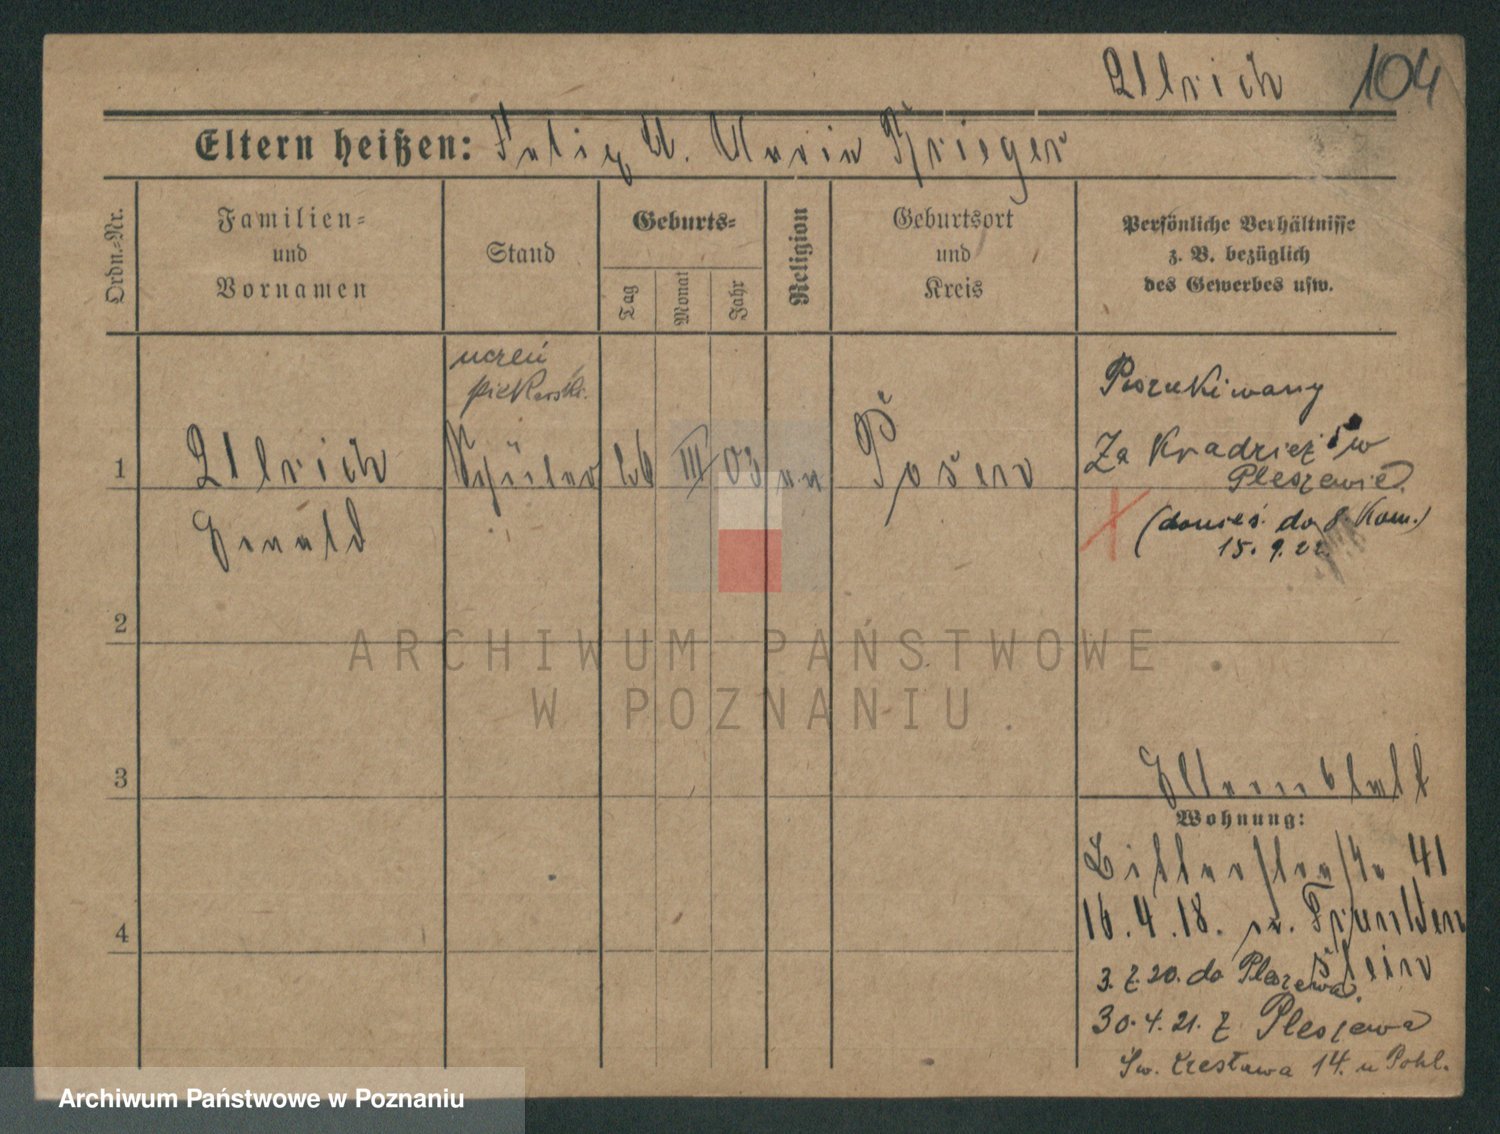 Ullrich 104
Eltern heißen: Felix u. Maria Krieger
Ordn.=Nr.
Familien=
und
Vornamen
Stand
Geburts=
Tag
Monat
Jahr
Religion
Geburtsort
und
Kreis
Persönliche Verhältnisse
z. B. bezüglich
des Gewerbes usw.
uczeń
piekarski.
1 Ullrich Schüler 26 III 03 Posen
Poszukiwany
Za Kradzież w
Pleszewie.
(donieś. do 8 Kom.)
15. 9. 22
2
3
Elternblatt
Wohnung:
41
16.4.18. n.
4
3. 7. 20. do Pleszewa.
30. 4. 21. z Pleszewa
Św. Czesława 14. u Pohl.
ARCHIWUM PAŃSTWOWE
W POZNANIU.
Archiwum Państwowe w Poznaniu